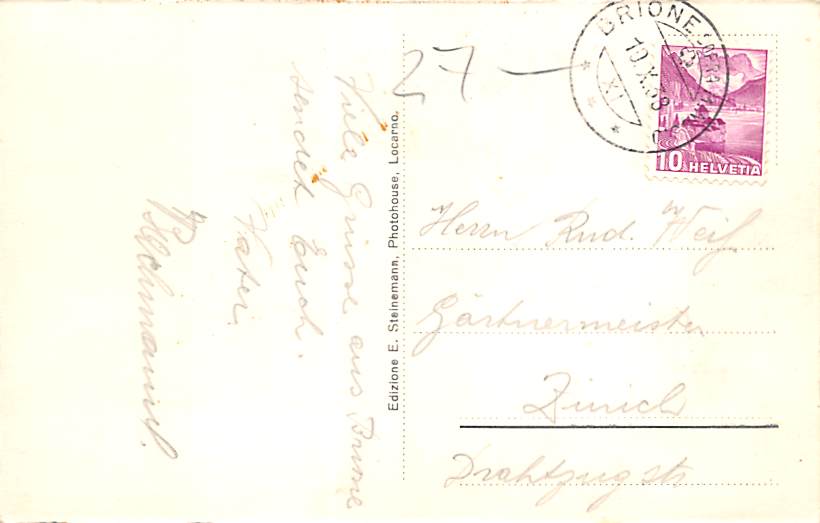 Viele Grüsse aus Brione
sendet Euch.
Vater.
Edizione E. Steinemann, Photohouse, Locarno.
27 –
BRIONE
10.X.38
XI
10 HELVETIA
Herrn Rud. Weiß
Gärtnermeister
Zürich
Drahtzugstr